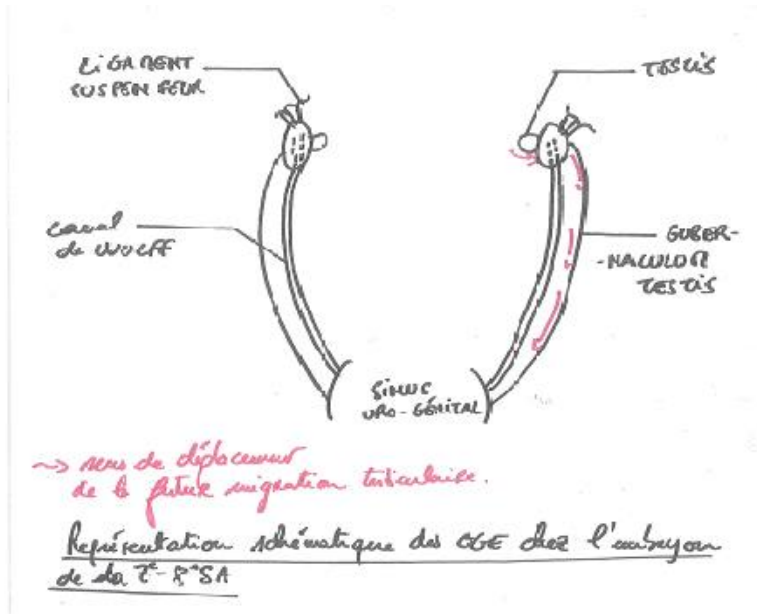 LIGAMENT
SUSPENSEUR
TESTIS
canal
de WOLFF
GUBER-
-NACULUM
TESTIS
SINUS
URO-GÉNITAL
~> sens de déplacement
de la future migration testiculaire.
Représentation schématique des OGE chez l'embryon
de la 7e - 8e SA